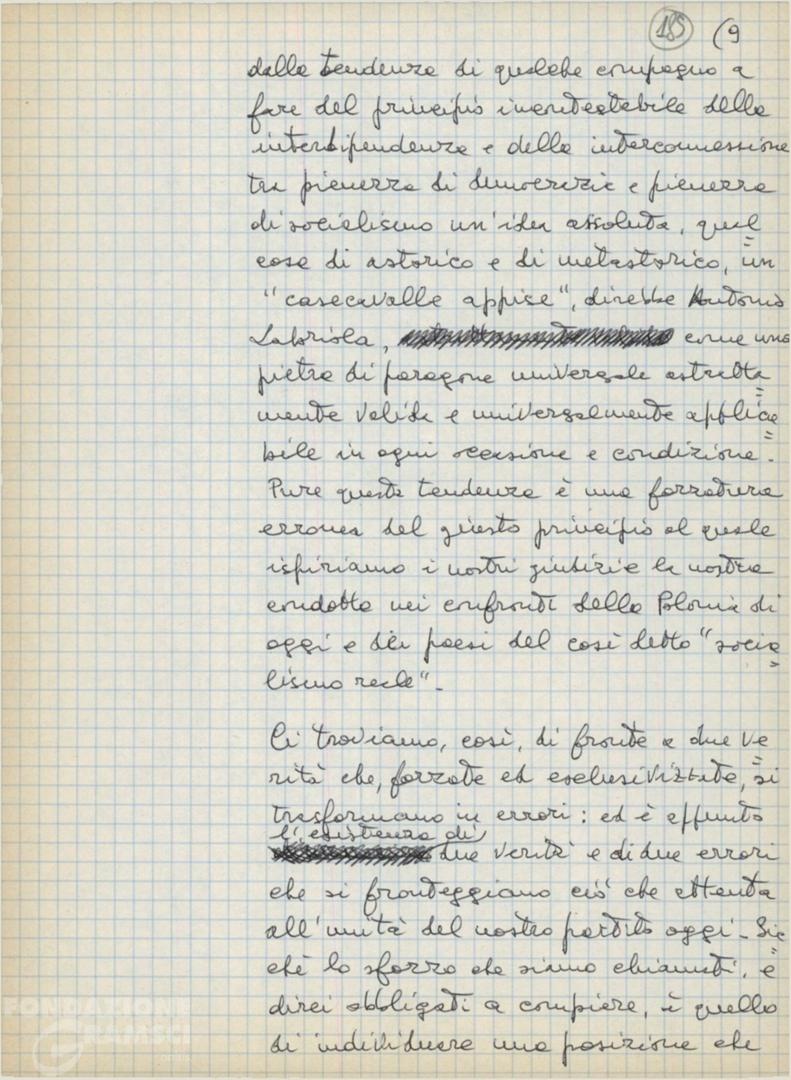 185 (9
dalla tendenza di qualche compagno a
fare del principio incontestabile della
interdipendenza e della interconnessione
tra pienezza di democrazia e pienezza
di socialismo un'idea assoluta, qual=
cosa di astorico e di metastorico, un
"casecavalle appise", direbbe Antonio
Labriola, come una
pietra di paragone universale astratta=
mente valida e universalmente applica=
bile in ogni occasione e condizione.
Pure questa tendenza è una forzatura
erronea del giusto principio al quale
ispiriamo i nostri giudizi e la nostra
condotta nei confronti della Polonia di
oggi e dei paesi del così detto "socia=
lismo reale".
Ci troviamo, così, di fronte a due ve=
rità che, forzate ed esclusivizzate, si
trasformano in errori: ed è appunto
l'esistenza di
due verità e di due errori
che si fronteggiano ciò che attenta
all'unità del nostro partito oggi. Sic=
ché lo sforzo che siamo chiamati, e
direi obbligati a compiere, è quello
di individuare una posizione che
FONDAZIONE
GRAMSCI